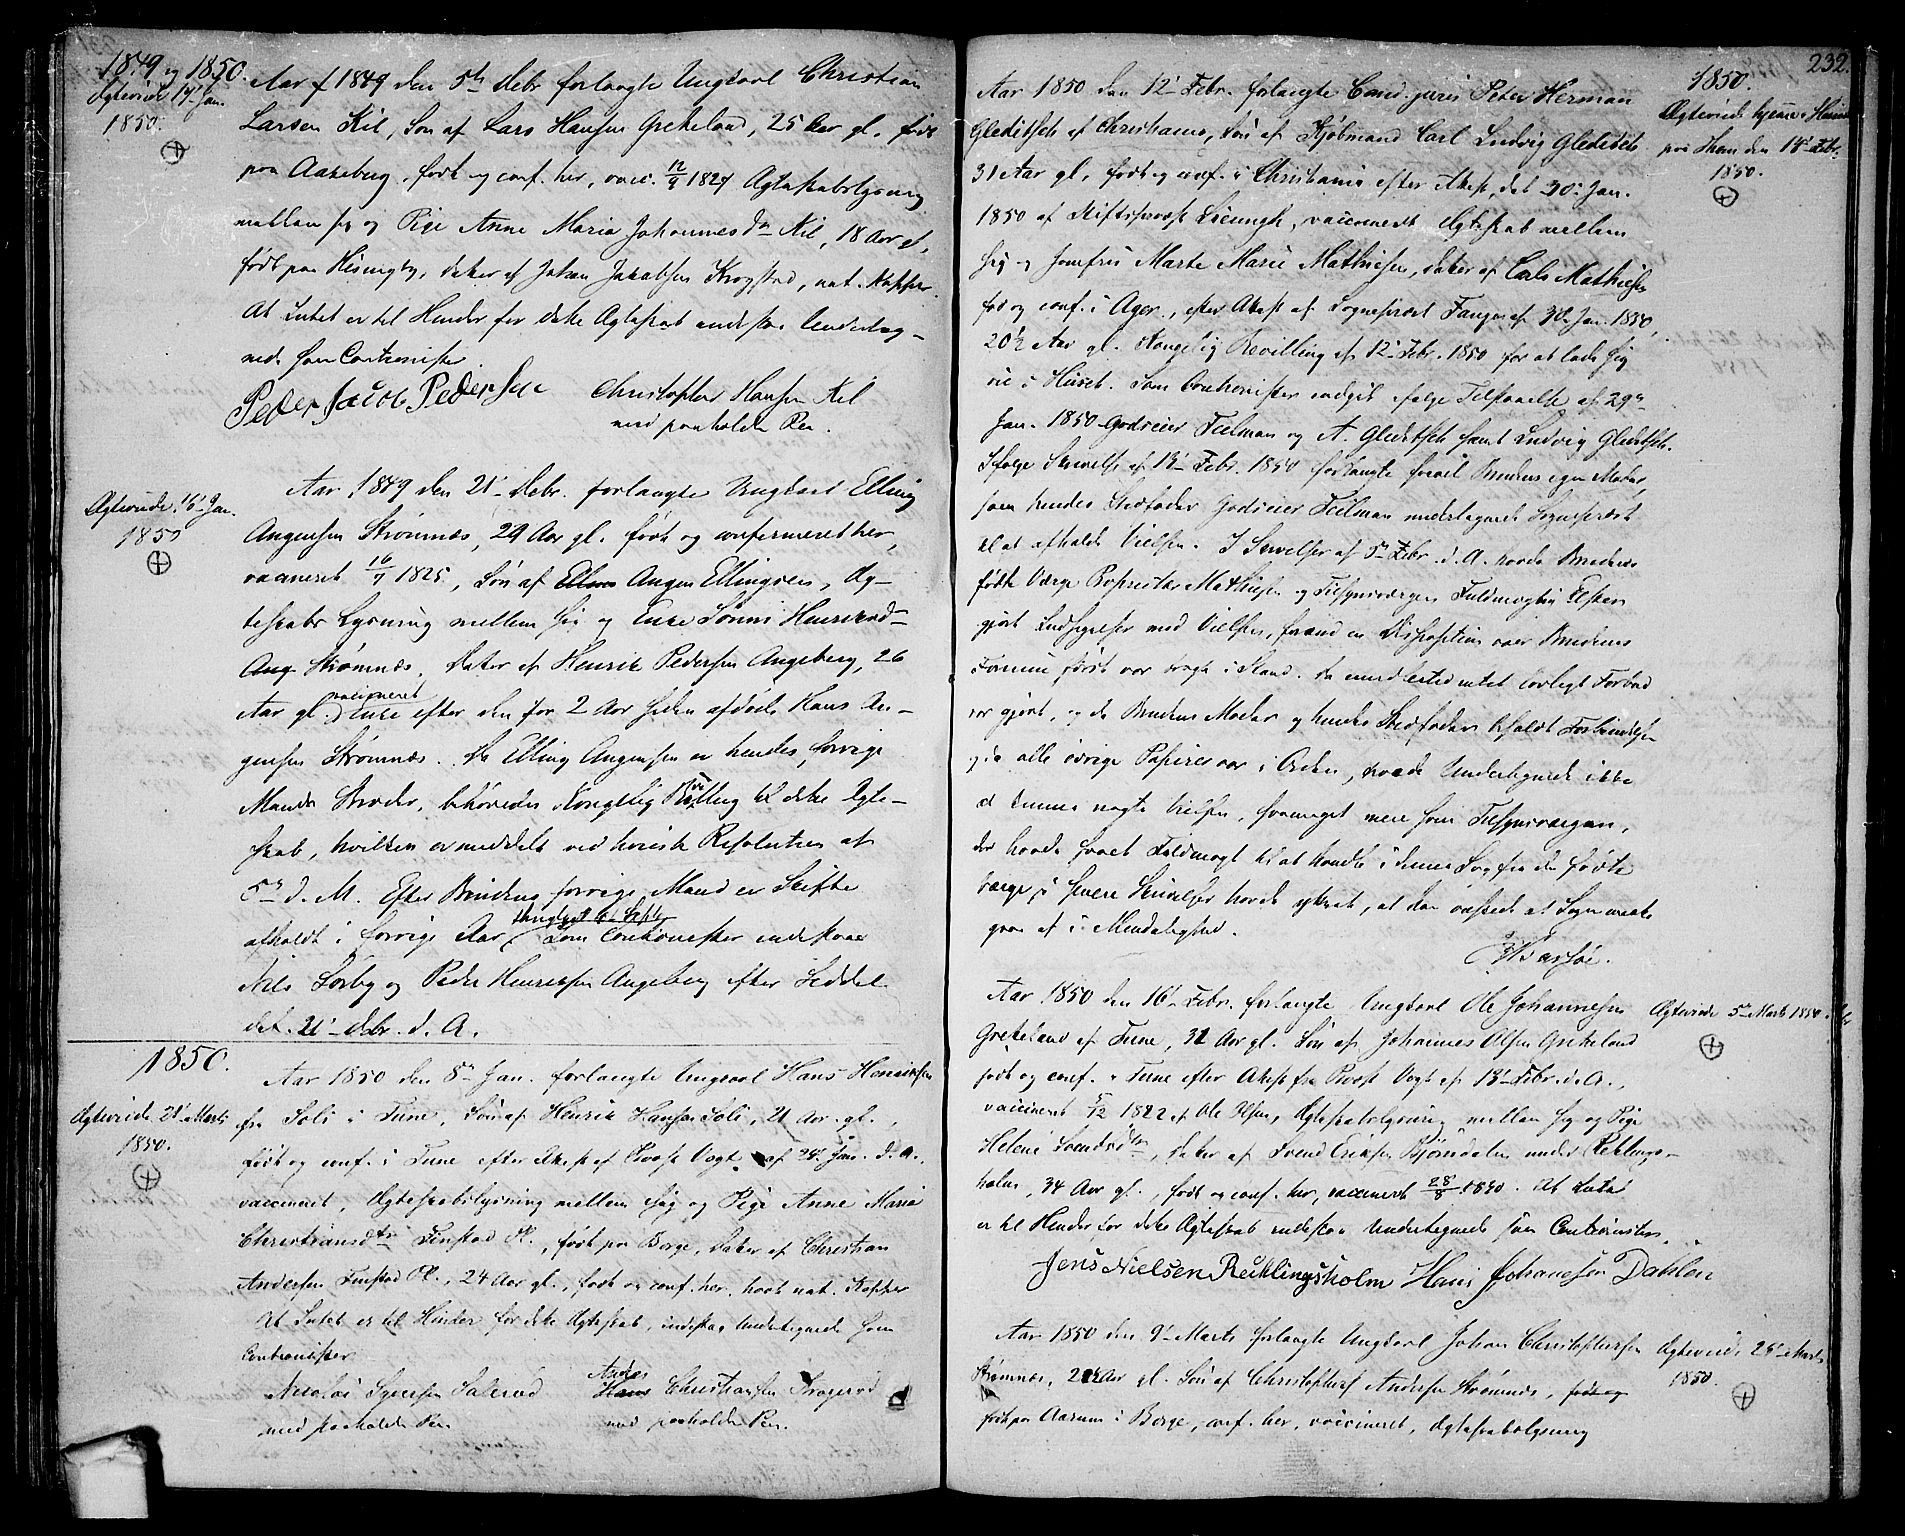 1849 og 1850.
Ægteviede 14 Jan.
1850.
Aar 1849 den 5te Debr forlangte Ungkarl Christian
Larsen Kil, Søn af Lars Hansen Grekeland, 25 Aar gl. født
paa Aaseberg, født og conf. her, vacc. 12/9 1827 Ægteskabslysning
mellem sig og Pige Anne Maria Johannesdtr Kil, 18 Aar gl.
født paa Hisingby, Datter af Johan Jakobsen Krogstad, nat. Kopper.
At Intet er til Hinder for dette Ægteskab indestaa Underteg-
nede som Cautionister.
Peder Jacob Pedersen Christopher Hansen Kil
med paaholden Pen.
Ægteviede 16 Jan.
1850
Aar 1849 den 21 Debr. forlangte Ungkarl Elling
Angensen Strømnæs, 29 Aar gl. født og confirmeret her,
vaccineret 16/7 1825, Søn af Angen Ellingsen, Æg-
teskabs Lysning mellem sig og Enke Sønni Henriksd
Strømnæs, Datter af Henrik Pedersen Angeberg, 26
Aar gl. vaccineret Enke efter den for 2 Aar siden afdøde Hans An-
gensen Strømnæs. Da Elling Angensen er hendes forrige
Mands Broder, behøvedes Kongelig Bevilling til dette Ægte-
skab, hvilken er meddelt ved høieste Resolution af
5te d. M. Efter Brudens forrige Mand er Skifte
afholdt i forrige Aar Som Cautionister indestaae
Nils Sørby og Peder Henriksen Angeberg efter Seddel
dat. 21 Debr. d. A.
1850.
Ægteviede 21 Marts
1850.
Aar 1850 den 8de Jan. forlangte Ungkarl Hans Henriksen
fra Soli i Tune, Søn af Henrik Hansen Soli, 21 Aar gl.,
født og conf. i Tune efter Attest af Provst Vogt af 24 Jan. d. A.,
vaccineret, Ægteskabslysning mellem sig og Pige Anne Marie
Christiansdtr Finstad Pl., født paa Borge, Datter af Christian
Andersen Finstad Pl., 24 Aar gl., født og conf. her, havt nat. Kopper
At Intet er til Hinder for dette Ægteskab, indestaa Undertegnede som
Cautionister
Nicolai Syversen Salerød Anders Christiansen Krogerød
med paaholden Pen med paaholden Pen.
232.
1850.
Ægteviede hjemme i Huset
paa Thom den 14 Febr.
1850.
Aar 1850 den 12 Febr. forlangte Cand. juris Peter Herman
Gleditsch af Christiania, Søn af Kjøbmand Carl Ludvig Gleditsch
31 Aar gl., født og conf. i Christiania efter Attest, dat. 30 Jan.
1850 af Stiftsprovst, vaccineret Ægteskab mellem
sig og Jomfru Marte Marie Mathiesen, Datter af Carls Mathiesen
fød og conf. i Ager, efter Attest af Sognepræst Fangen af 30 Jan. 1850,
20½ Aar gl. Kongelig Bevilling af 12 Febr. 1850 for at lade sig
vie i Huset. Som Cautionister indgik ifølge Tilstaaelse af 29de
Jan. 1850 Godseier Tielman og A. Gleditsch samt Ludvig Gleditsch.
Ifølge Skrivelse af 13 Febr. 1850 forlangte saavel Brudens egen Moder,
som hendes Stedfader Godseier Tielman undertegnede Sognepræst
til at afholde Vielsen. I Skrivelser af 5te Febr. d. A. havde Brudens
fødte Værge Mathiesen og Tilsynsværgen Fuldmægtig
gjort Indsigelser mod Vielsen, førend en Disposition over Brudens
Formue først var bragt i Stand. Da imidlertid intet lovligt Forbud
var gjort, og da Brudens Moder og hendes Stedfader befaldt Forbindelsen
og da alle øvrige Papirer var i Orden, havde Undertegnede ikke
at kunne nægte Vielsen, saameget mere som Tilsynsværgen,
der havde faaet Fuldmagt til at handle i denne Sag fra den fødte
Værge i senere Skrivelser havde yttret, at han ønskede at Sagen maatte
gaae af i Mindelighed.
Aar 1850 den 16 Febr. forlangte Ungkarl Ole Johannesen
Grekeland af Tune, 31 Aar gl. Søn af Johannes Olsen Grekeland
født og conf. i Tune efter Attest fra Provst Vogt af 13 Febr. d. A.,
vaccineret 5/12 1822 af Ole Olsen, Ægteskabslysning mellem sig og Pige
Helene Svendsdtr, Datter af Svend Eriksen Bjørndalen under Reklings-
holm, 34 Aar gl., født og conf. her, vaccineret 28/8 1830. At Intet
er til Hinder for dette Ægteskab indestaa Undertegnede som Cautionister.
Jens Nielsen Recklingsholm Hans Johanesen Dahlen
Ægteviede 5te Marts 1850
Aar 1850 den 9 Marts forlangte Ungkarl Johan Christophersen
Strømnæs, 24 Aar gl. Søn af Christopher Andersen Strømnæs, født og
født paa Aarum i Borge, conf. her, vaccineret, Ægteskabslysning
Ægteviede 25 Marts
1850.